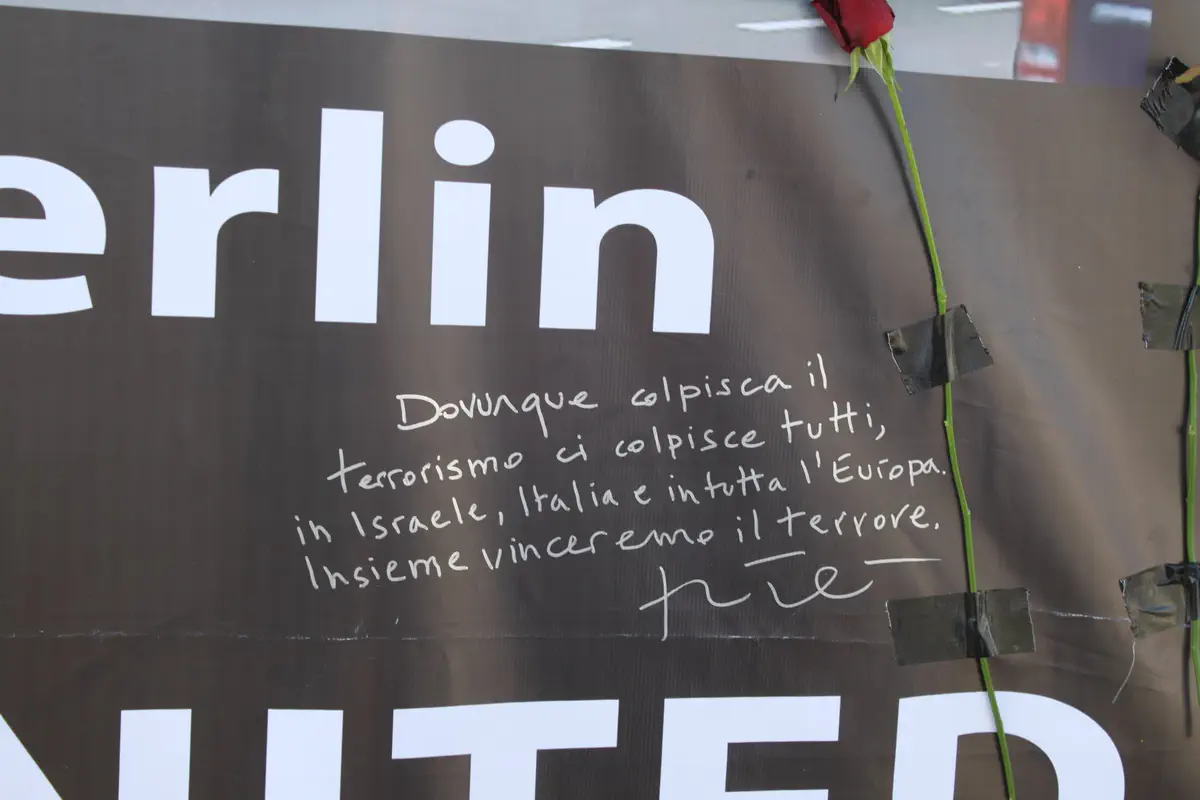 erlin
Dovunque colpisca il
terrorismo ci colpisce tutti,
in Israele, Italia e in tutta l'Europa.
Insieme vinceremo il terrore.
NITED